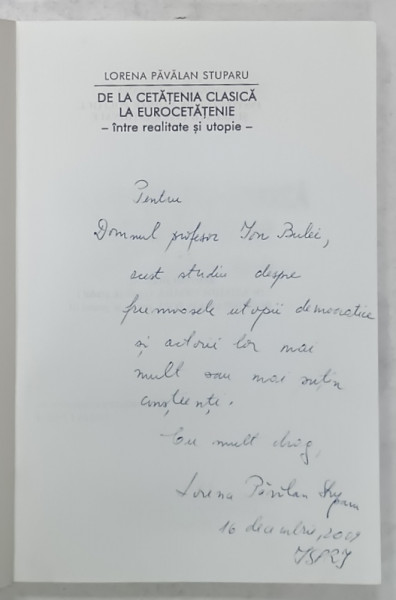 LORENA PĂVĂLAN STUPARU
DE LA CETĂȚENIA CLASICĂ
LA EUROCETĂȚENIE
– între realitate și utopie –
Pentru
Domnul profesor Ion Bulei,
acest studiu despre
frumoasele utopii democratice
și actorii lor mai
mult sau mai puțin
conștienți.
Cu mult drag,
Lorena Păvălan Stuparu
16 decembrie, 2009
ISPRI